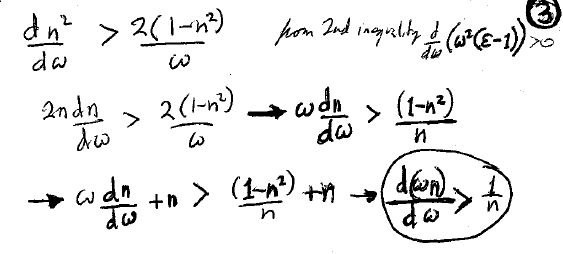 ③
dn²/dω > 2(1-n²)/ω from 2nd inequality d/dω (ω²(ε-1)) > 0
2n dn/dω > 2(1-n²)/ω → ω dn/dω > (1-n²)/n
→ ω dn/dω + n > (1-n²)/n + n → d(ωn)/dω > 1/n